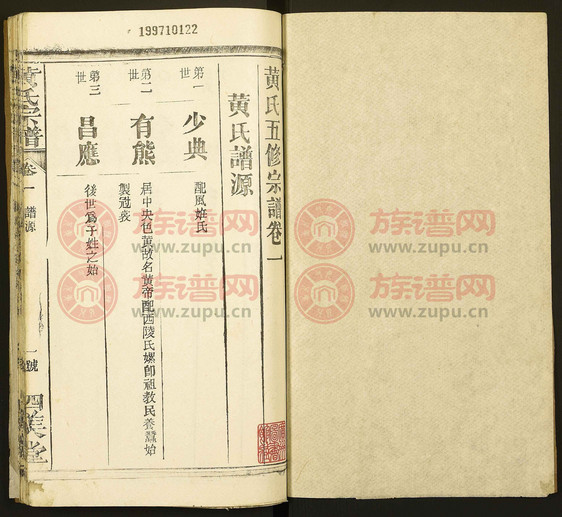 199710122
黃氏五修宗譜卷一
黃氏譜源
第一世
少典
配風姓氏
第二世
有熊
居中央色黃故名黃帝配西陵氏嫘卽祖教民養蠶始
製冠裳
第三世
昌應
後世爲子姓之始
黃氏宗譜
卷一
譜源
一號
四美堂
族谱网
www.zupu.cn
族谱网
www.zupu.cn
族谱网
www.zupu.cn
族谱网
www.zupu.cn